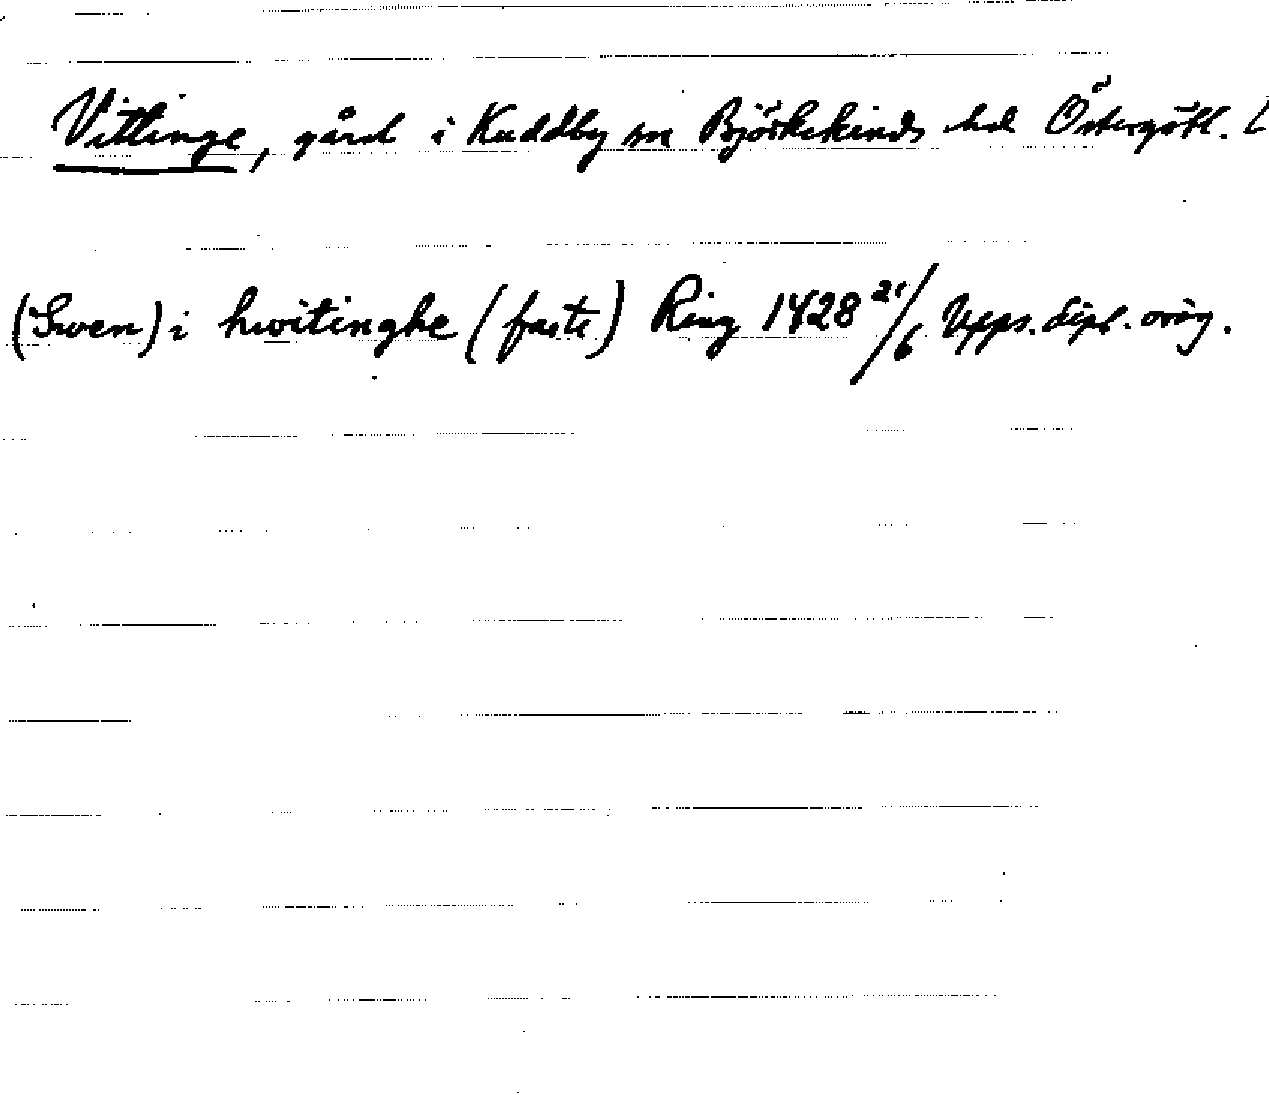 Vittinge, gård i Kuddby sn Björkekinds hd Östergötl. l
(Swen) i hwitinghe (faste) Ring 1428 21/6 Upps. dipl. orig.